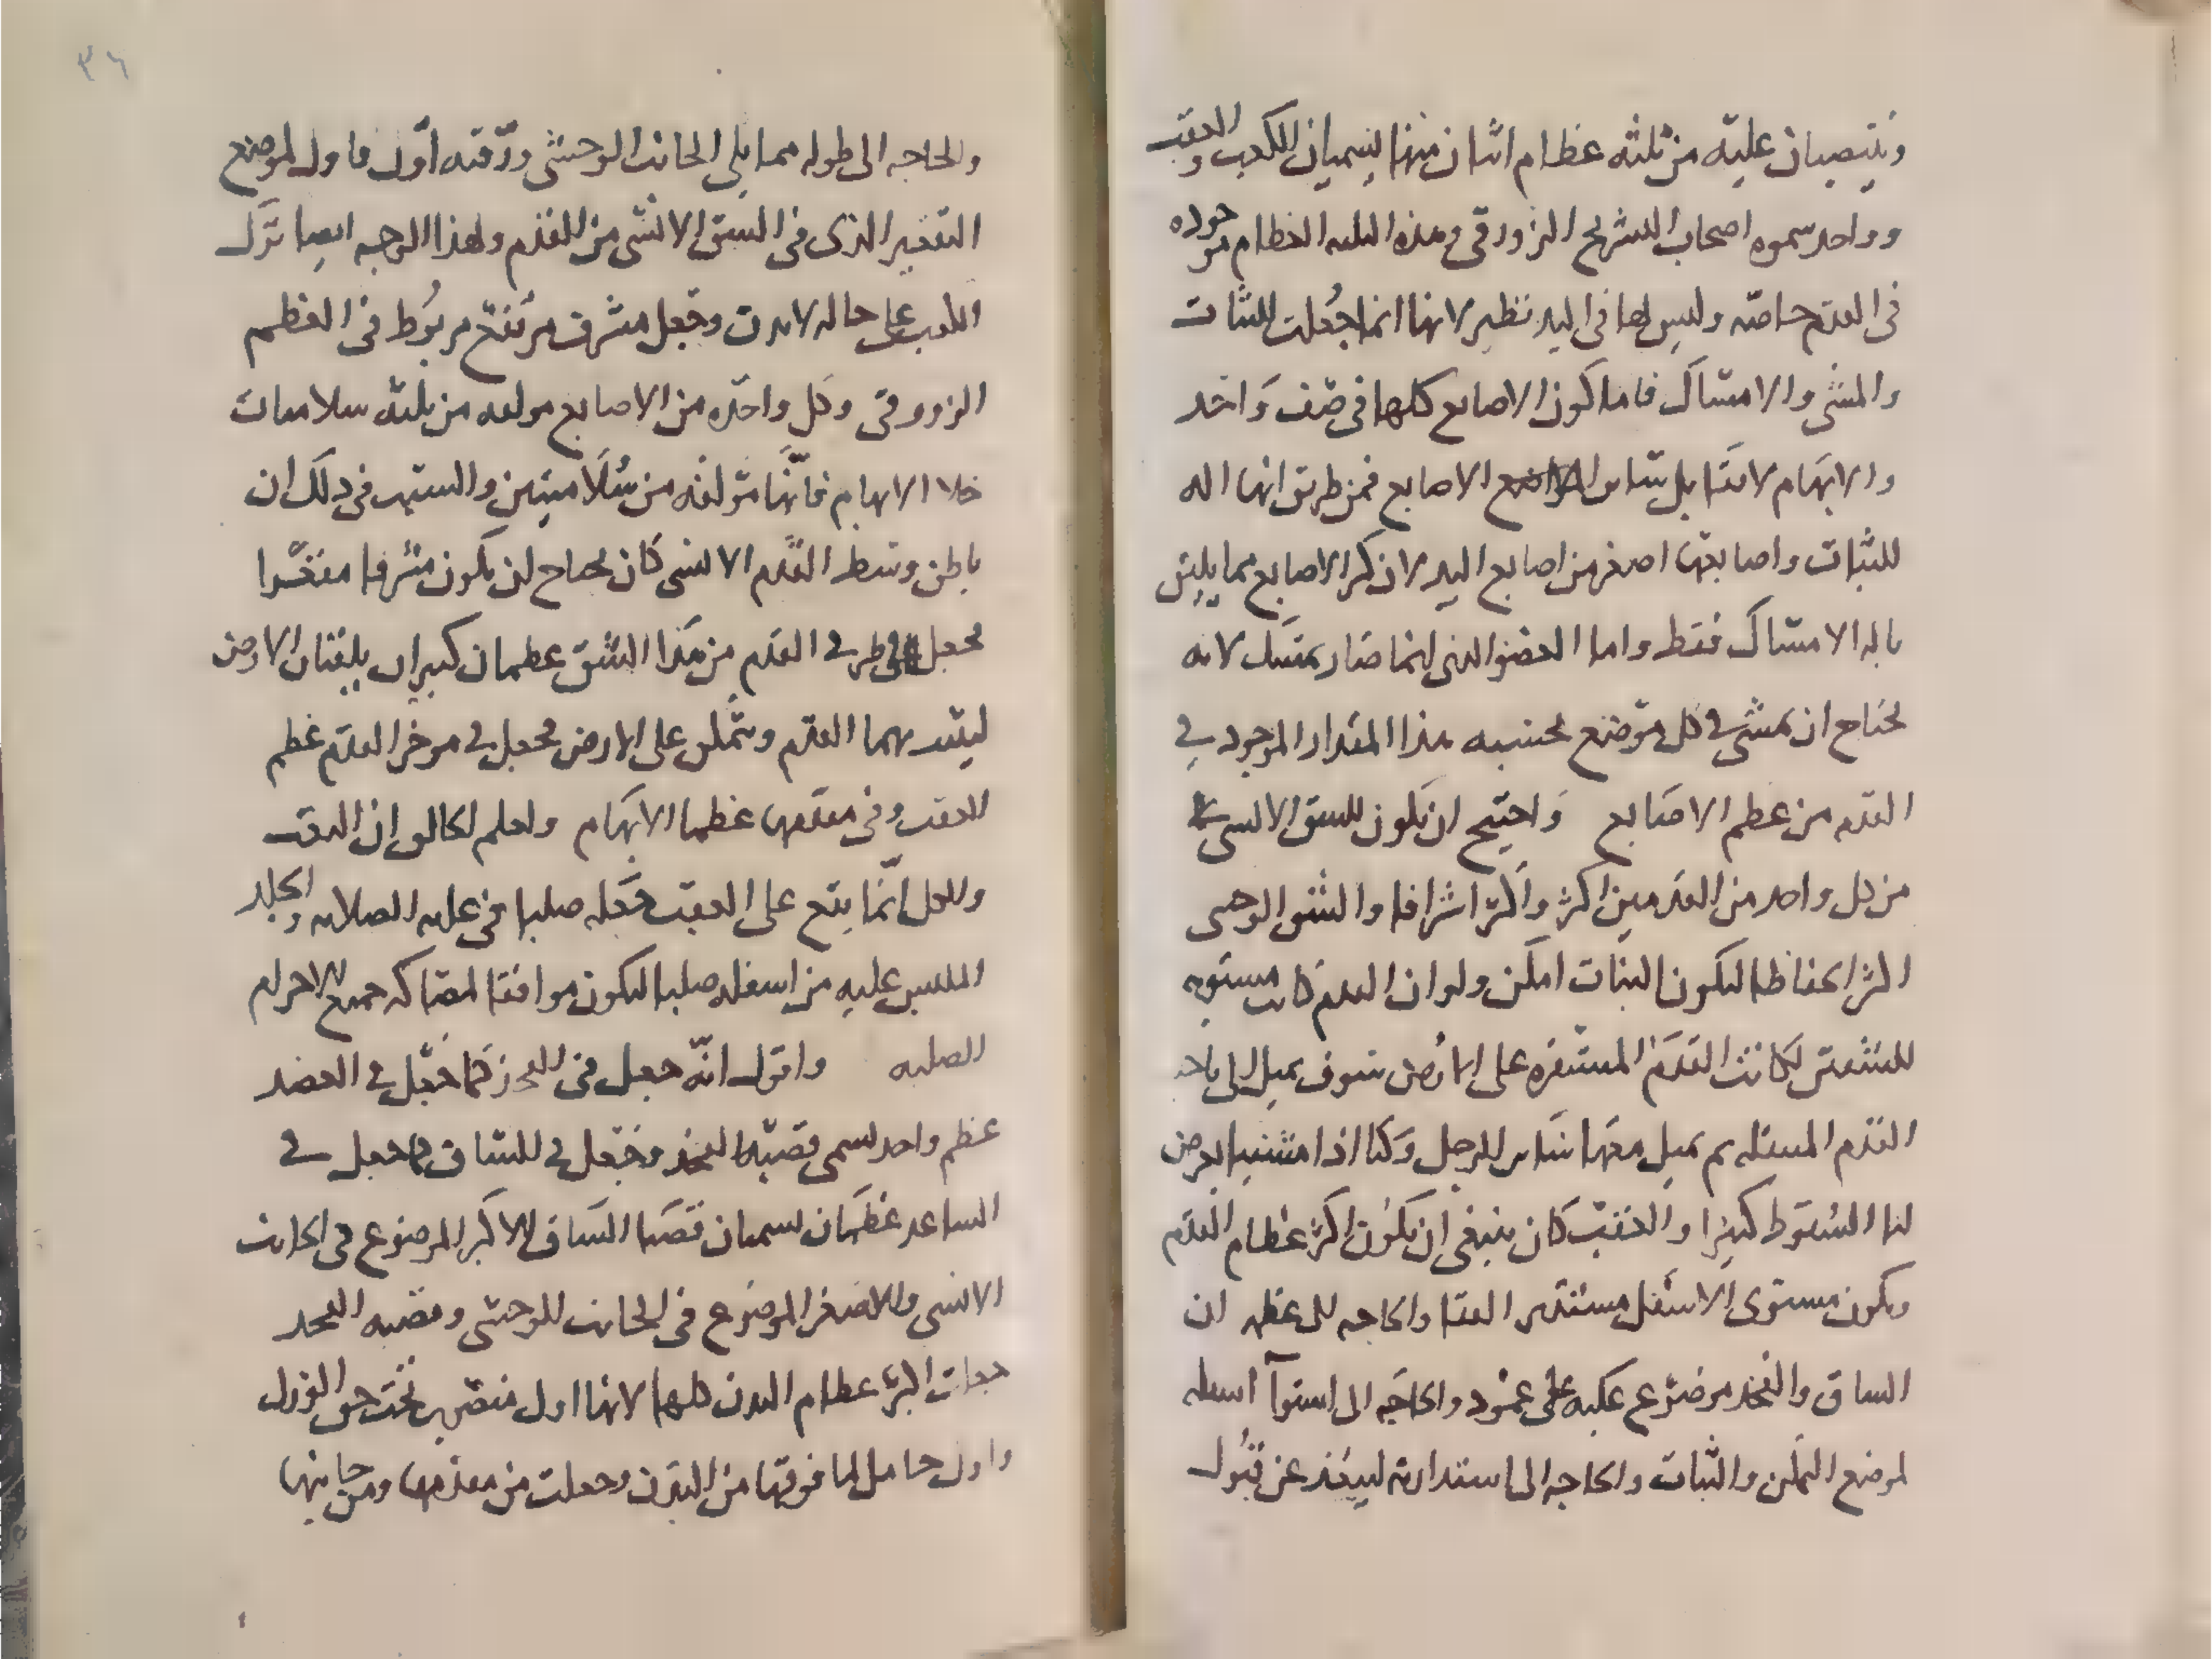 وينتصبان عليه من ثلثه عظام اثنان منها يسميان الكعب والعقب
وواحد سموه اصحاب التشريح الزورقى وهذه الثلثه العظام موجوده
فى القدم خاصه وليس لها فى اليد نظير لانها انما جعلت للثبات
والمشى والامتساك فاما كون الاصابع كلها فى صف واحد
والابهام لا يقابل بها سائر الاصابع فمن طريق انها اله
للثبات واصابعها اصغر من اصابع اليد لان كبر الاصابع مما يليق
باله الامتساك فقط واما العضو الذى انما صار يمتسك لانه
يحتاج ان يمشى فى كل موضع فحسبه هذا المقدار الموجود فى
القدم من عظم الاصابع واحتيج ان يكون للشق الانسى
من كل واحد من القدمين اكثر واكثر اشرافا والشق الوحشى
اكثر انخفاظا ليكون الثبات امكن ولو ان القدم كانت مستويه
الشقين لكانت القدم المستقره على الارض سوف يميل الى ناحيه
القدم المستقله ثم يميل معها سائر الرجل وكنا اذا مشينا يعرض
لنا السقوط كثيرا والعقب كان ينبغى ان يكون اكبر عظام القدم
ويكون مستوى الاسفل مستدير القفا والحاجه الى عظمه ان
الساق والفخذ موضوع عليه على عمود والحاجه الى استوآ اسفله
لموضع التمكن والثبات والحاجه الى استدارته ليبعد عن قبول
٣٦
والحاجه الى طوله مما يلى الجانب الوحشى ودقته اول فاول لموضع
التقعير الذى فى الشق الانسى من القدم ولهذا الوجه ايضا ترك
الكعب على حاله لا يدق وجعل مشرف مرتفع مربوط فى العظم
الزورقى وكل واحده من الاصابع مولفه من ثلثه سلاميات
خلا الابهام فانها مؤلفه من سلاميتين والسبب فى ذلك ان
باطن وسط القدم الانسى كان يحتاج ان يكون مشرفا مقعرا
فجعل فى طرفى القدم من هذا الشق عظمان كبيران يلقيان الارض
ليشد بهما القدم ويتمكن على الارض فجعل فى موخر القدم عظم
العقب وفى مقدمها عظما الابهام واعلم الخالق ان التعب
والكل انما يقع على العقب فجعله صلبا فى غايه الصلابه والجلد
الملبس عليه من اسفله صلبا ليكون موافقا لمصاكه جميع الاجرام
الصلبه واقول انه جعل فى الفخذ كما جعل فى العضد
عظم واحد يسمى قصبه الفخذ وجعل فى الساق كما جعل فى
الساعد عظمان يسميان قصبتا الساق الاكبر الموضوع فى الجانب
الانسى والاصغر الموضوع فى الجانب الوحشى وقصبه الفخذ
جعلت اكبر عظام البدن كلها لانها اول منتصب تحت حق الورك
واول حامل لما فوقها من البدن وجعلت من مقدمها ومن جانبها